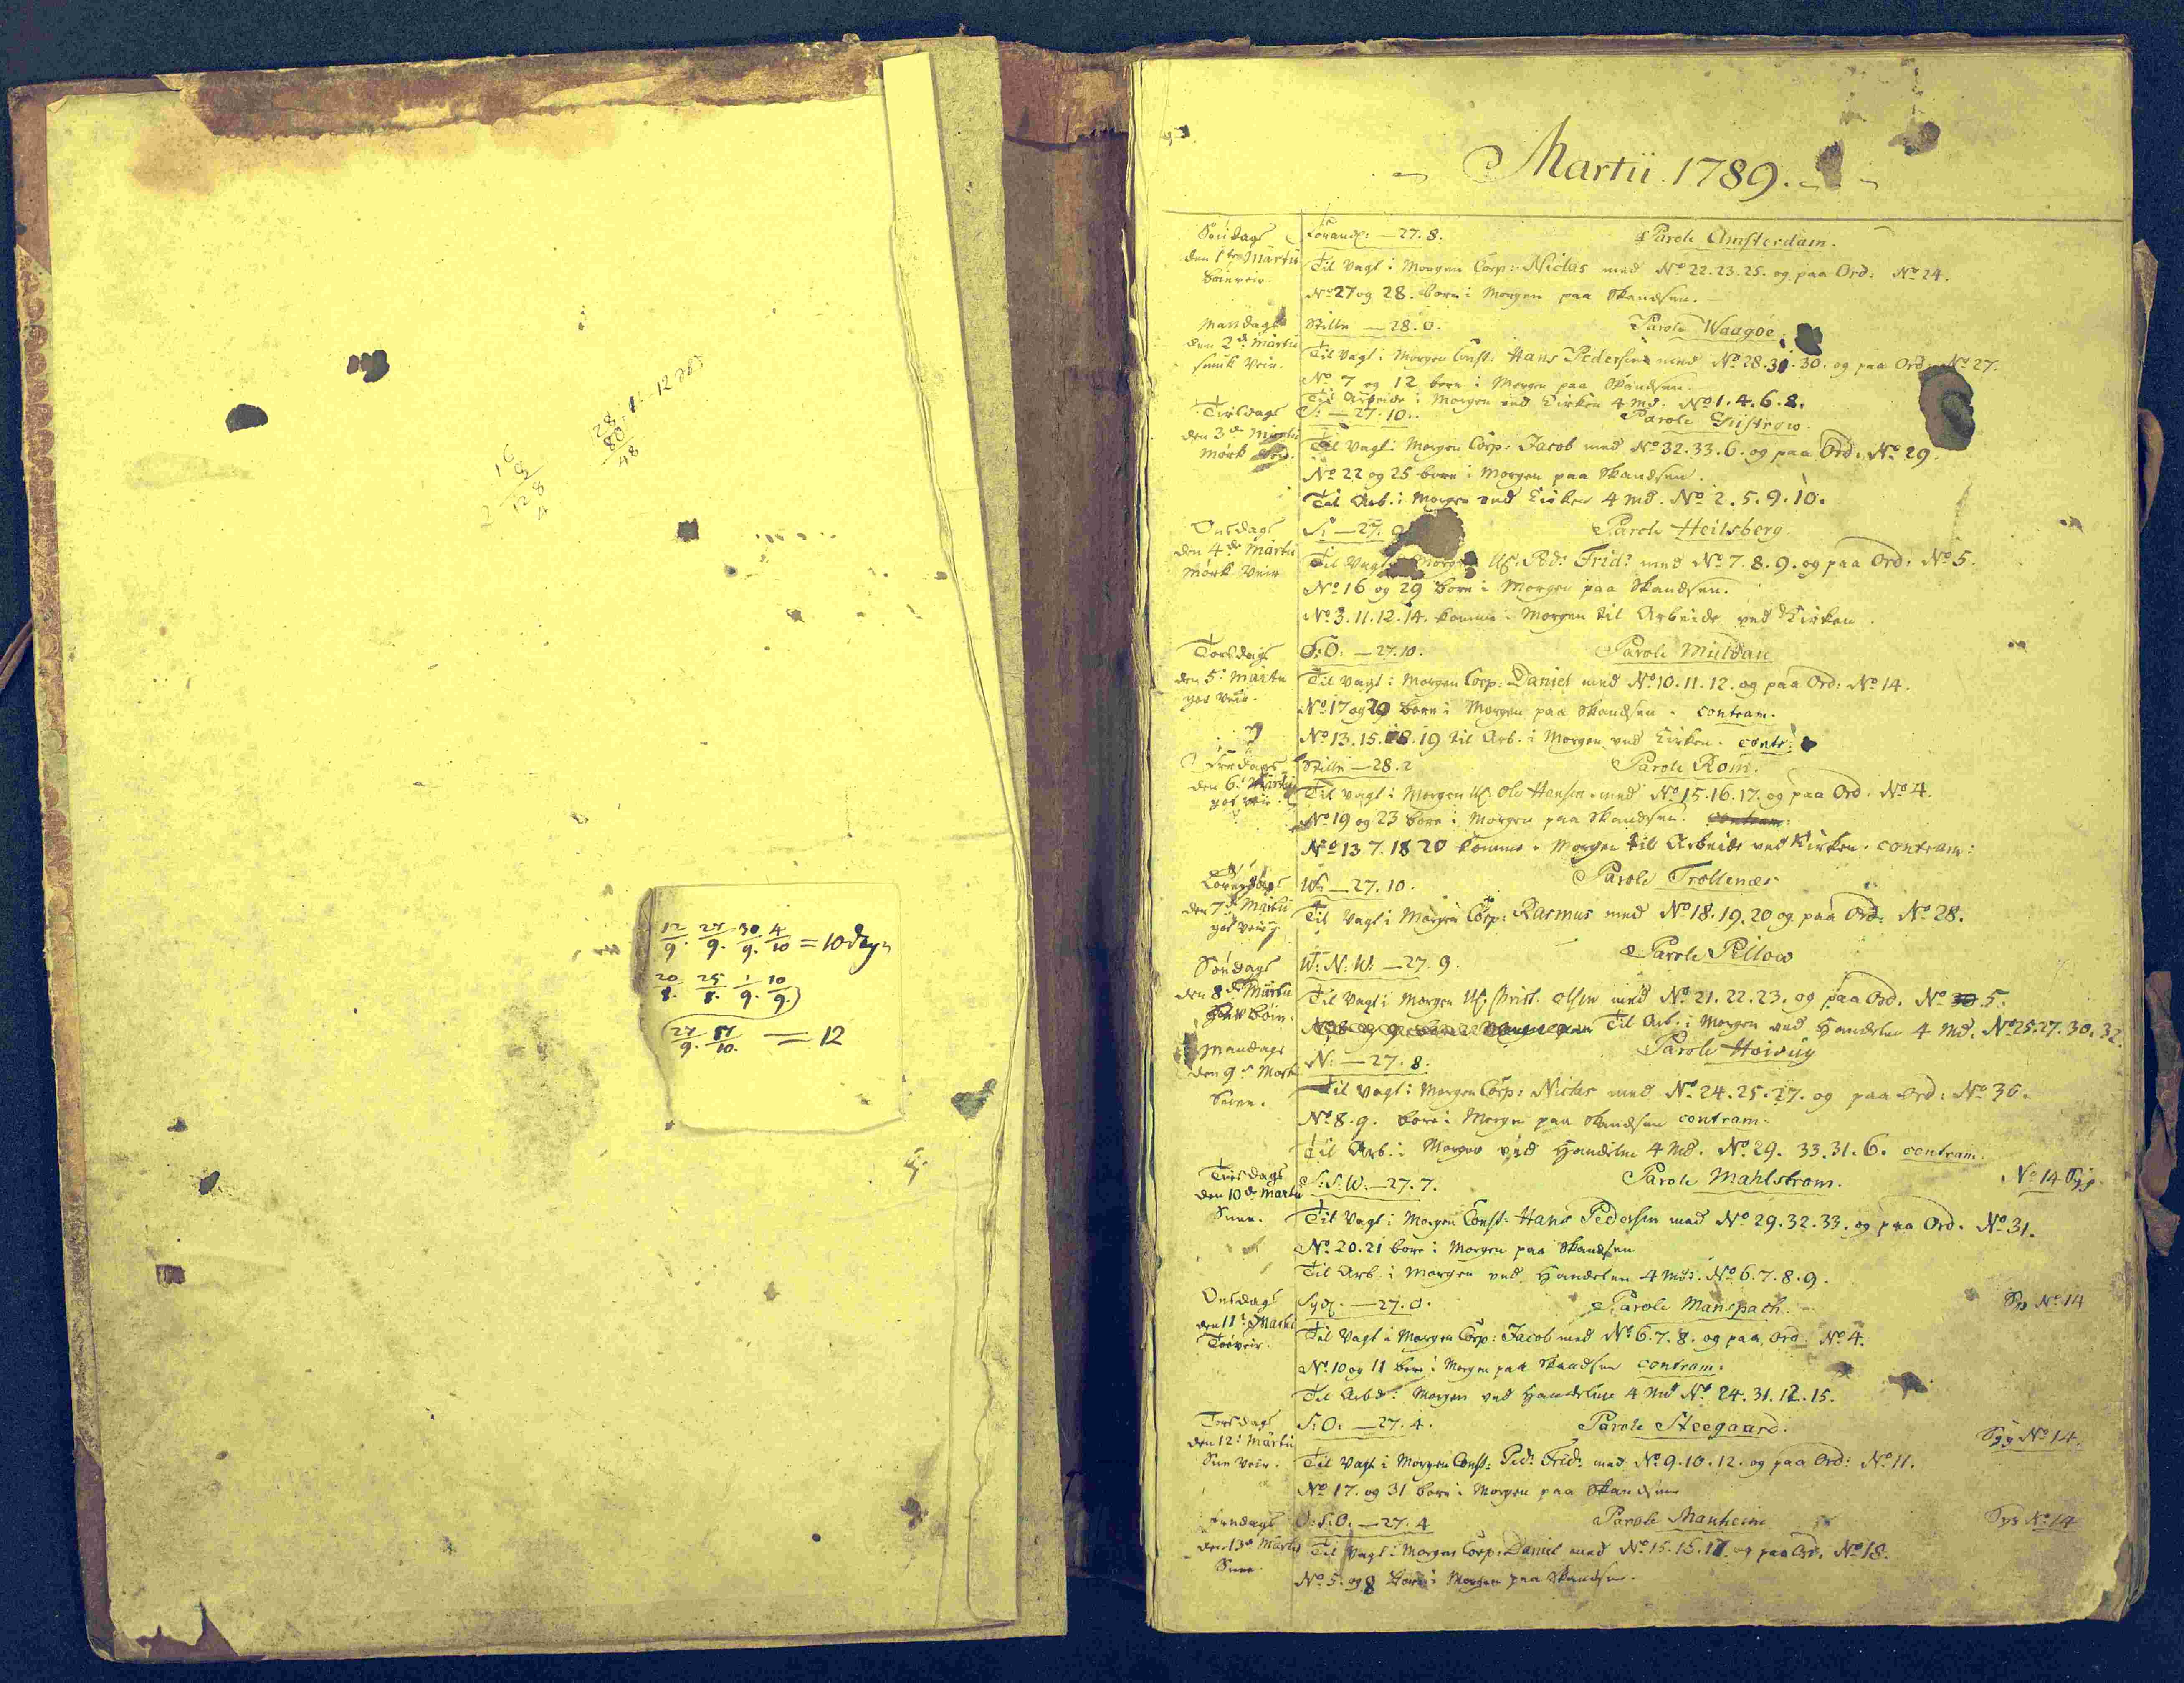 28
80
48
16
8
128
12/9. 27/9. 30/9. 4/10 = 10
20/8. 25/8. 1/9. 10/9.
27/9. 17/10. = 12
Martii 1789.
Søndags
den 1 Martii
27. 8. Parole Amsterdam.
Til Vagt i Morgen Corp: Niclas med No 22. 23. 25. og paa Ord: No 24.
No 27 og 28. bære i Morgen paa Skandsen.
Mandags
den 2de Martii
smuk Veir.
Stille — 28. 0. Parole Waagøe.
Til Vagt i Morgen Const: Hans Pedersen med No 28. 31. 30. og paa Ord: No 27.
No 7 og 12 bære i Morgen paa Skandsen.
Til Arbeide i Morgen ved Kirken 4 Md: No 1. 4. 6. 8.
Tirsdags
den 3de Martii
Mørk Veir.
S: — 27. 10. Parole Güstrow.
Til Vagt i Morgen Corp: Jacob med No 32. 33. 6. og paa Ord: No 29.
No 22 og 25 bære i Morgen paa Skandsen.
Til Arb. i Morgen ved Kirken 4 Md. No 2. 5. 9. 10.
Onsdags
den 4de Martii
Mørk Veir
S: — 27. Parole Heilsberg
Til Vagt i Morgen Ped: Frid: med No 7. 8. 9. og paa Ord: No 5.
No 16 og 29 bære i Morgen paa Skandsen.
No 3. 11. 12. 14. komme i Morgen til Arbeide ved Kirken.
Torsdags
den 5: Martii
got Veir.
S:O: — 27. 10. Parole Muldau
Til Vagt i Morgen Corp: Daniel med No 10. 11. 12. og paa Ord: No 14.
No 17 og 29 bære i Morgen paa Skandsen. contram.
No 13. 15. 18. 19 til Arb. i Morgen ved Kirken. contr:
Fredags
den 6: Martii
got Veir.
Stille — 28. 2 Parole Rom.
Til Vagt i Morgen Ole Hansen med No 15. 16. 17. og paa Ord: No 4.
No 19 og 23 bære i Morgen paa Skandsen. contram:
No 13 7. 18 20 komme i Morgen til Arbeide ved Kirken. contram:
Løverdags
den 7de Martii
got Veir
W: — 27. 10. Parole Trollenæs
Til Vagt i Morgen Corp: Rasmus med No 18. 19. 20 og paa Ord: No 28.
Søndags
den 8de Martii
W: N: W: — 27. 9. Parole Pillow
Til Vagt i Morgen Christ. Olsen med No 21. 22. 23. og paa Ord. No 5.
Til Arb. i Morgen ved Handelen 4 Md. No 25. 27. 30. 32.
Mandags
den 9de Mart
Snee.
N: — 27. 8. Parole Hoivüg
Til Vagt i Morgen Corp: Niclas med No 24. 25. 27. og paa Ord: No 30.
No 8. 9. bære i Morgen paa Skandsen contram.
Til Arb. i Morgen ved Handelen 4 Md. No 29. 33. 31. 6. contram.
Tirsdags
den 10de Martii
Snee.
S: S: W: — 27. 7. Parole Mahlstrom. No 14 Syg
Til Vagt i Morgen Const: Hans Pedersen med No 29. 32. 33. og paa Ord. No 31.
No 20. 21 bære i Morgen paa Skandsen
Til Arb. i Morgen ved Handelen 4 Md: No 6. 7. 8. 9.
Onsdags
den 11: Martii
Tøeveir.
27. 0. Parole Manspach. No 14
Til Vagt i Morgen Corp: Jacob med No 6. 7. 8. og paa Ord: No 4.
No 10 og 11 bære i Morgen paa Skandsen contram:
Til Arbd: i Morgen ved Handelen 4 Md No 24. 31. 12. 15.
Torsdags
den 12: Martii
Snee Veir.
S: O: — 27. 4. Parole Steegaard. Syg No 14.
Til Vagt i Morgen Const: Ped: Frid: med No 9. 10. 12. og paa Ord: No 11.
No 17. og 31 bære i Morgen paa Skandsen
Fredags
den 13de Martii
Snee.
O: S: O. — 27. 4 Parole Manheim Syg No 14
Til Vagt i Morgen Corp: Daniel med No 15. 16. 17. og paa Ord. No 18.
No 5. og 8 bære i Morgen paa Skandsen.